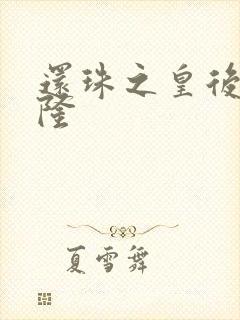 還珠之皇後
隆
夏雪舞